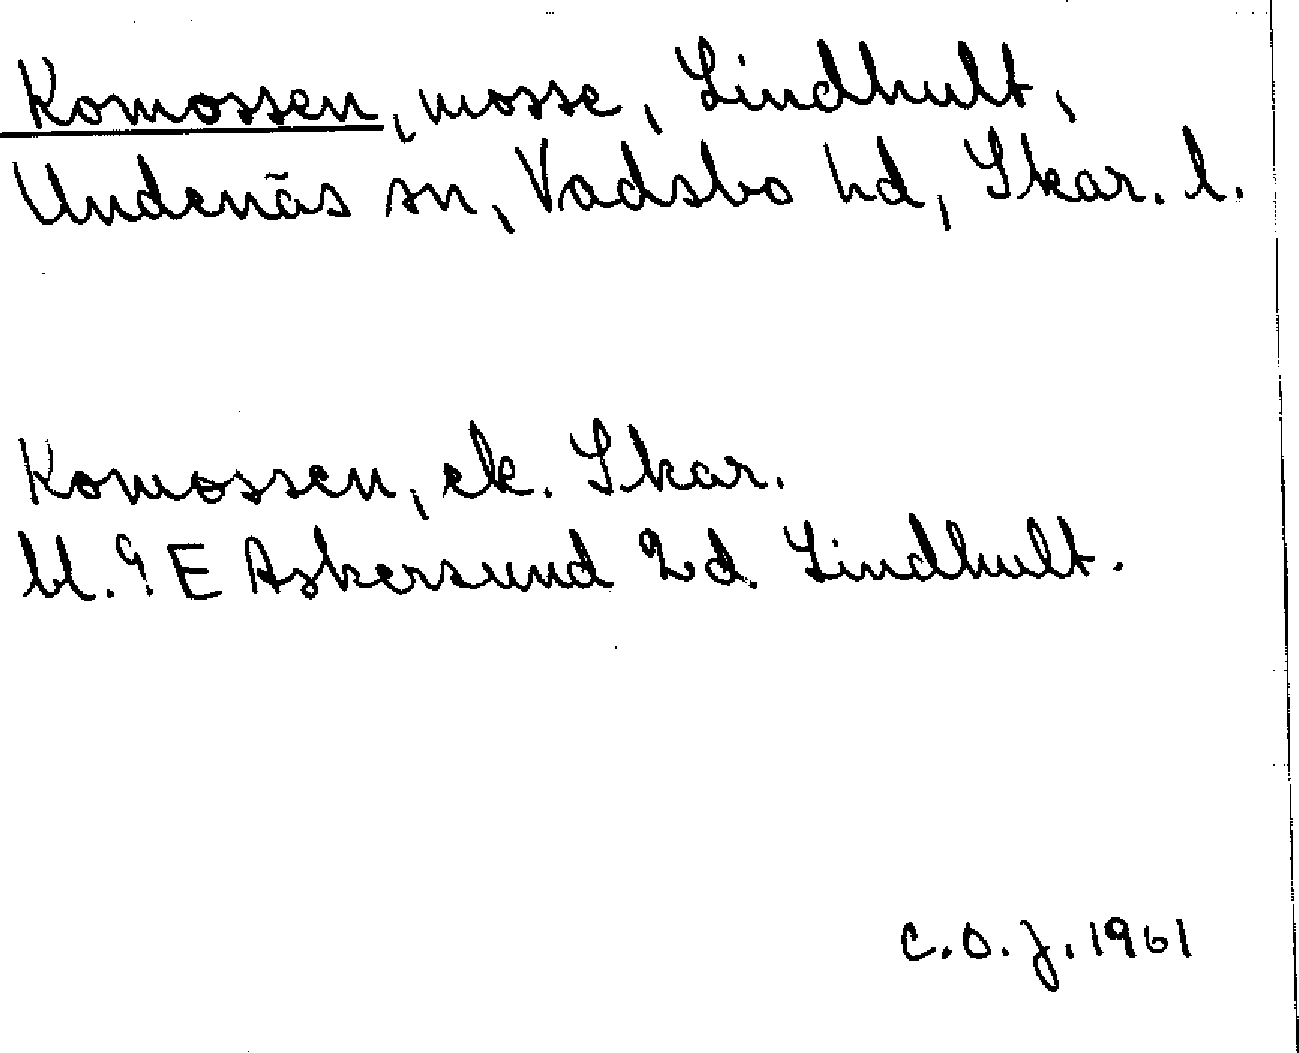 Komossen, mosse, Lindhult,
Undenäs sn, Vadsbo hd, Skar. l.
Komossen, ek. Skar.
bl. 9 E Askersund 2d. Lindhult.
C.O.J. 1961